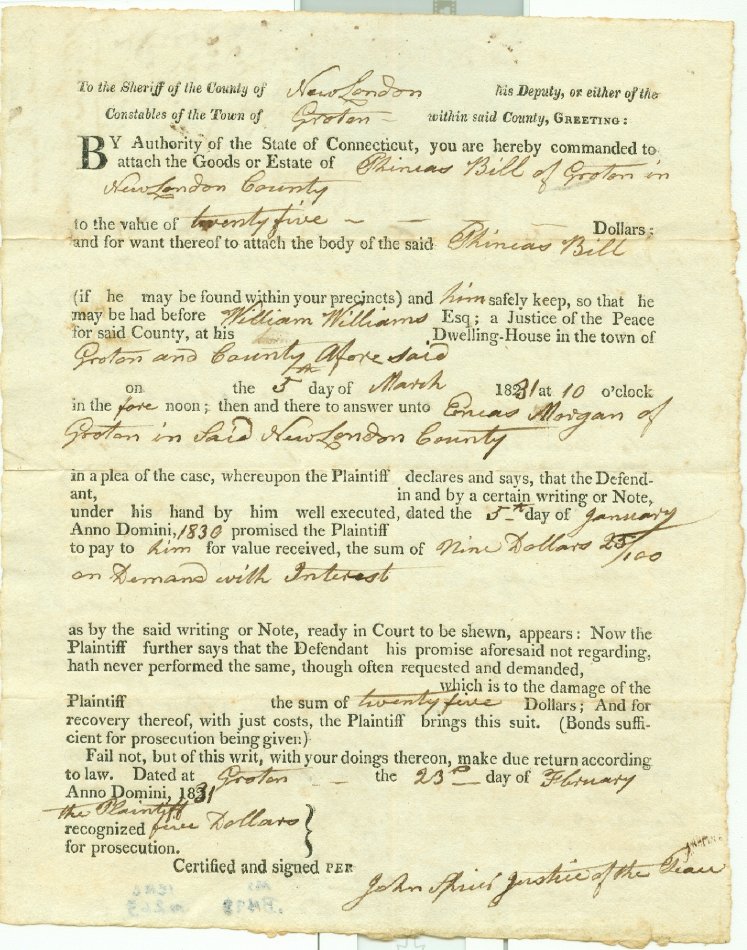 To the Sheriff of the County of New London his Deputy, or either of the
Constables of the Town of Groton within said County, GREETING:
BY Authority of the State of Connecticut, you are hereby commanded to
attach the Goods or Estate of Phineas Bill of Groton in
New London County
to the value of twenty five Dollars;
and for want thereof to attach the body of the said Phineas Bill
(if he may be found within your precincts) and him safely keep, so that he
may be had before William Williams Esq; a Justice of the Peace
for said County, at his Dwelling-House in the town of
Groton and County Afore said
on the 5th day of March 1831 at 10 o'clock
in the fore noon; then and there to answer unto Eneas Morgan of
Groton in Said New London County
in a plea of the case, whereupon the Plaintiff declares and says, that the Defend-
ant, in and by a certain writing or Note,
under his hand by him well executed, dated the 5th day of January
Anno Domini, 1830 promised the Plaintiff
to pay to him for value received, the sum of Nine Dollars 25/100
on Demand with Interest
as by the said writing or Note, ready in Court to be shewn, appears: Now the
Plaintiff further says that the Defendant his promise aforesaid not regarding,
hath never performed the same, though often requested and demanded,
which is to the damage of the
Plaintiff the sum of twenty five Dollars; And for
recovery thereof, with just costs, the Plaintiff brings this suit. (Bonds suffi-
cient for prosecution being given)
Fail not, but of this writ, with your doings thereon, make due return according
to law. Dated at Groton the 23rd day of February
Anno Domini, 1831
the Plaintiff
recognized five Dollars
for prosecution.
Certified and signed PER
John Spicer Justice of the Peace